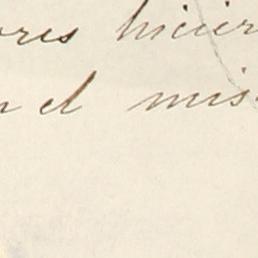 ores hicier
n el mis